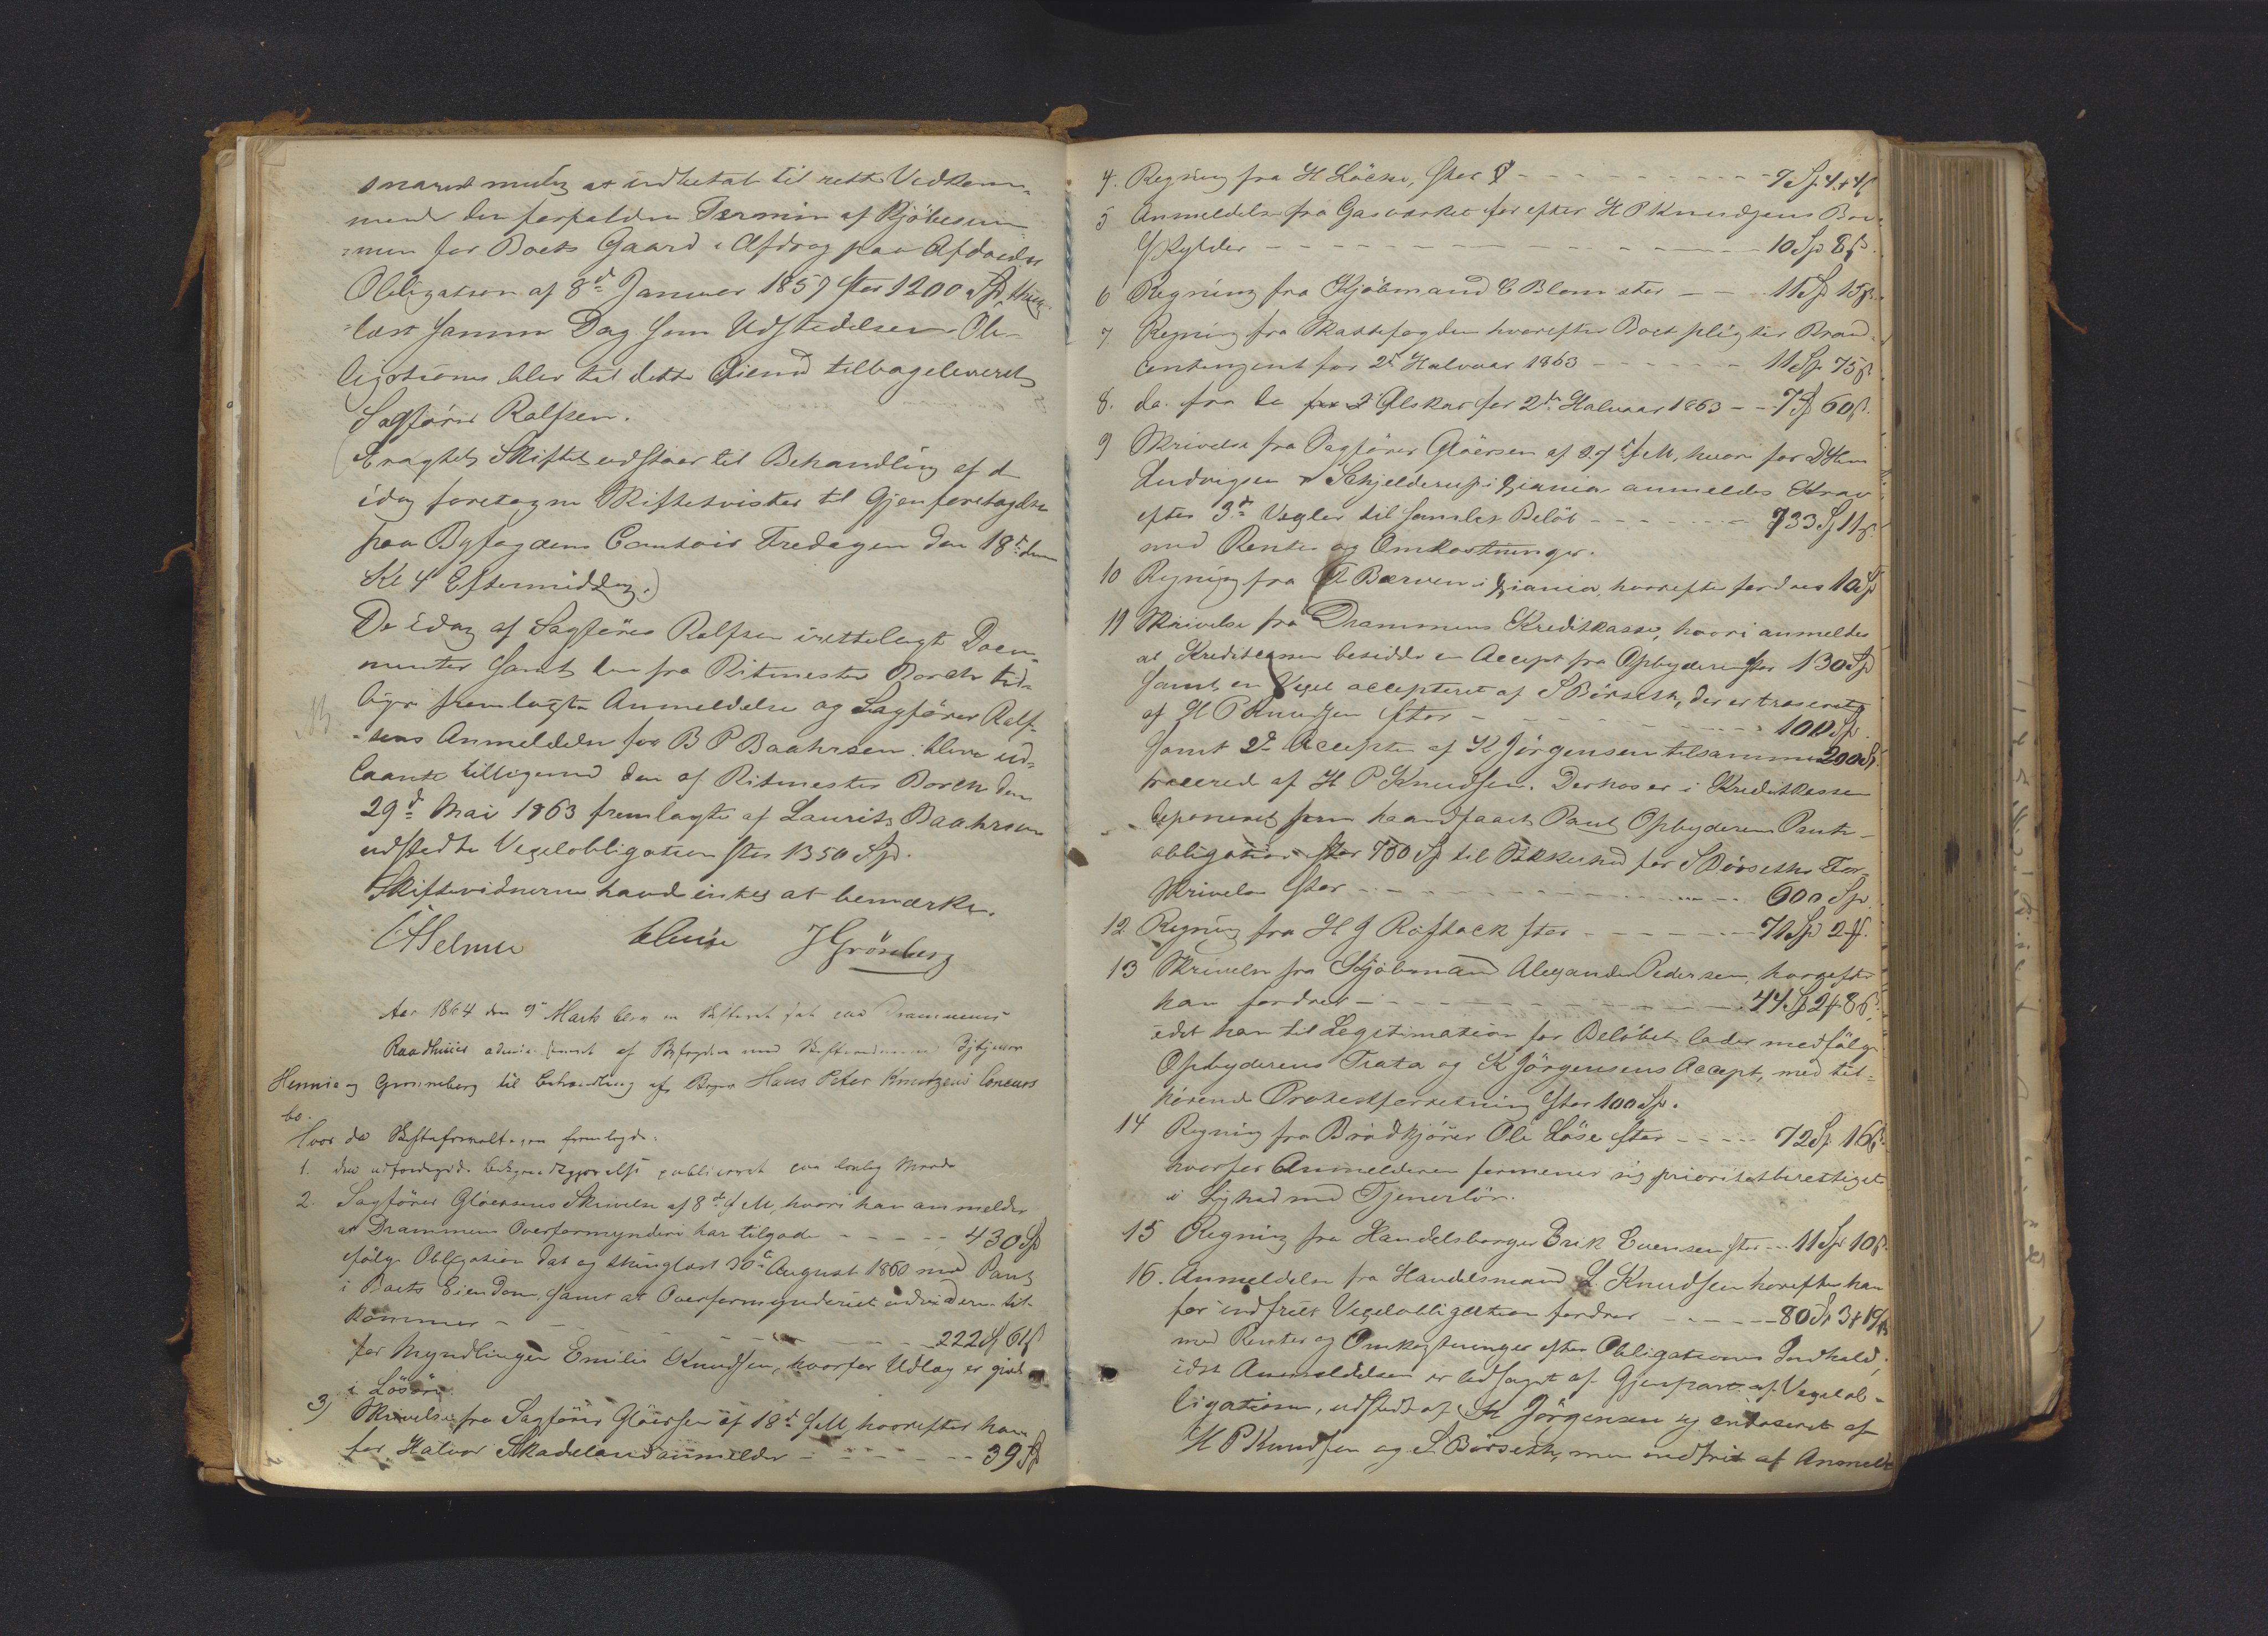 snarest mulig at indbetale til rette Vedkom¬
mende den forfaldne Termin af Kjøbesum¬
men for Boets Gaard i Afdrag paa Afdødes
Obligation af 8d Januar 1857 stor 1200 Spd, thing¬
læst samme Dag som Udstedelsen. Ob¬
ligationen blev til dette Øiemed tilbageleveret
Sagfører Rolfsen.
(Eragtet Skiftet udstaar til Behandling af de
idag foretagne Skiftetvister til Gjenforetagelse
paa Byfogdens Contoir Fredagen den 18de dennes
Kl 4 Eftermiddag.)
De idag af Sagfører Rolfsen irettelagte Docu¬
menter samt den fra Ritmester Borch tid¬
ligere fremlagte Anmeldelse og Sagfører Rolf¬
sens Anmeldelse for B P Baahrsen bleve ud¬
laante tilligemed den af Ritmester Borch den
29d Mai 1863 fremlagte af Laurits Baahrsen
udstedte Vexelobligation stor 1350 Spd.
Skiftevidnerne havde intet at bemærke.
J Grönberg
Aar 1864 den 9de Marts blev en Skifteret sat paa Drammens
Raadhuus administreret af Byfogden med Skiftevidnerne
Hennie og Grønneberg til Behandling af Hans Peter Knutzens Concurs
bo.
Hvor da Skifteforvalteren fremlagde:
1. den udfærdigede Bekjendtgjørelse publiceret paa lovlig Maade
2. Sagfører Gløersens Skrivelse af 8de f M, hvori han anmelder
at Drammens Overformynderi har tilgode - - - - - 430 Sp
ifølge Obligation dat og thinglæst 30te August 1860 med Pant
i Boets Eiendom, samt at Overformynderiet endvidere til¬
kommer - - - - - - 222 Sp 61 ß
for Myndlingen Emilie Knudsen, hvorfor Udlæg er gjort
i Løsøre.
3) Skrivelse fra Sagfører Gløersen af 18de f M, hvorefter han
for Halvor Skadeland anmelder - - - - - - 39 Sp
4. Regning fra H Löcke, stor - - - - - - - - 7 Sp. 4 # 4 ß
5 Anmeldelse fra Gasværket hvorefter H P Knudzens Bo
skylder - - - - - - - - - - 10 Sp 8 ß.
6 Regning fra Kjøbmand C Blom stor - - 11 Sp 15 ß.
7. Regning fra Skattefogden hvorefter Boet pligter Brand¬
contingent for 2d Halvaar 1863 - - - - - - 11 Sp. 75 ß.
8. do. fra do for Byskat for 2det Halvaar 1863 - - 7 Sp 60 ß.
9 Skrivelse fra Sagfører Gløersen af 29de f M, hvori for DHrr
Ludvigsen & Schjelderup i Xiania anmeldes Krav
efter 3de Vexler til samlet Beløb - - - - - - - 733 Sp 11 ß.
med Renter og Omkostninger.
10 Regning fra Bærven i Xiania, hvorefter fordres 10 Sp
11 Skrivelse fra Drammens Kreditkasse, hvori anmeldes
at Kreditkassen besidder en Accept fra Opbyderen stor 130 Sp
samt en Vexel accepteret af S Börseth, der er trasseret
af H P Knudsen stor - - - - - - - - - 100 Sp.
samt 2de Accepter af K Jörgensen tilsammen 200 Sp.
trasseret af H P Knudsen. Derhos er i Kreditkassen
deponeret som haandfaaet Pant Opbyderens Pante¬
obligation stor 750 Sp til Sikkerhed for S Börseths For¬
skrivelse stor - - - - - - - - - 600 Sp.
12 Regning fra H J Roftack stor - - - - - - - 71 Sp 2 #.
13 Skrivelse fra Kjøbmand Alexander Pedersen, hvorefter
han fordrer - - - - - - - - - 44 Sp 2 # 8 ß.
idet han til Legitimation for Beløbet lader medfølge
Opbyderens Trata og K Jörgensens Accept, med til¬
hørende Protestforretning stor 100 Sp.
14 Regning fra Brødkjører Ole Löse stor - - - - - 72 Sp. 16 ß.
hvorfor Anmelderen formener sig prioritetberettiget
i Lighed med Tjenerløn.
15 Regning fra Handelsborger Erik Evensen stor - - - 11 Sp. 10 ß.
16. Anmeldelse fra Handelsmand L. Knudsen hvorefter han
for indfriet Vexelobligation fordrer - - - - - - 80 Sp 3 # 19 ß
med Renter og Omkostninger efter Obligationens Indhold,
idet Anmeldelsen er ledsaget af Gjenpart af Vexelob¬
ligationen, udstedt af K Jörgensen og endosseret af
H P Knudsen og S Börseth, men indfriet af Anmeld